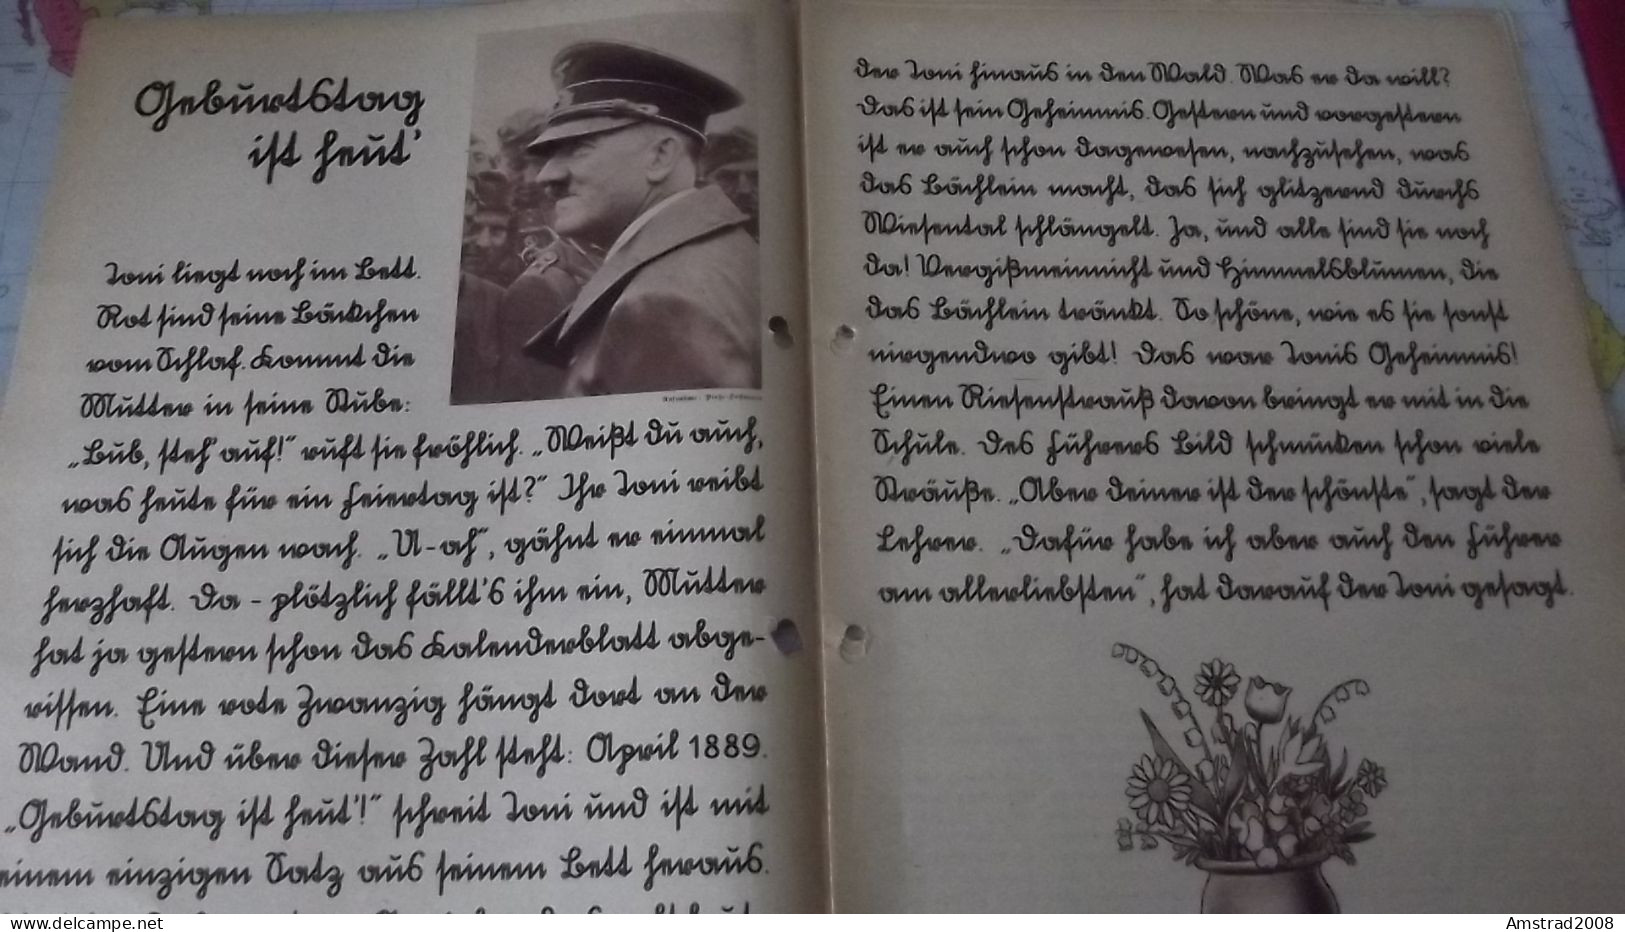 Geburtstag
ist heut'
Toni liegt noch im Bett.
Rot sind seine Bäckchen
vom Schlaf. Kommt die
Mutter in seine Stube:
„Bub, steh' auf!" ruft sie fröhlich. „Weißt du auch,
was heute für ein Feiertag ist?" Ihr Toni reibt
sich die Augen wach. „U-ah", gähnt er einmal
herzhaft. Da - plötzlich fällt's ihm ein, Mutter
hat ja gestern schon das Kalenderblatt abge-
rissen. Eine rote Zwanzig hängt dort an der
Wand. Und über dieser Zahl steht: April 1889.
„Geburtstag ist heut'!" schreit Toni und ist mit
einem einzigen Satz aus seinem Bett heraus.
der Toni hinaus in den Wald. Was er da will?
Das ist sein Geheimnis. Gestern und vorgestern
ist er auch schon dagewesen, nachzusehen, was
das Bächlein macht, das sich glitzernd durchs
Wiesental schlängelt. Ja, und alle sind sie noch
da! Vergißmeinnicht und Himmelsblumen, die
das Bächlein tränkt. So schöne, wie es sie sonst
nirgendwo gibt! Das war Tonis Geheimnis!
Einen Riesenstrauß davon bringt er mit in die
Schule. Des Führers Bild schmücken schon viele
Sträuße. „Aber deiner ist der schönste", sagt der
Lehrer. „Dafür habe ich aber auch den Führer
am allerliebsten", hat darauf der Toni gesagt.
Amstrad2008